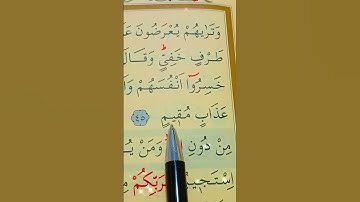 وَتَرٰيهُمْ يُعْرَضُونَ عَ
طَرْفٍ خَفِيٍّ وَقَالَ
خَسِرُٓوا اَنْفُسَهُمْ وَا
عَذَابٍ مُقٖيمٍ ﴿٤٥﴾
مِنْ دُونِ وَمَنْ يُ
اِسْتَجٖيبُ لِرَبِّكُمْ